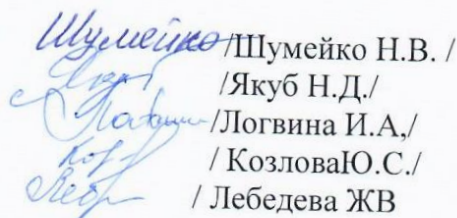 Шумейко /Шумейко Н.В. /
/Якуб Н.Д./
/Логвина И.А,/
Коз / КозловаЮ.С./
Лебе / Лебедева ЖВ